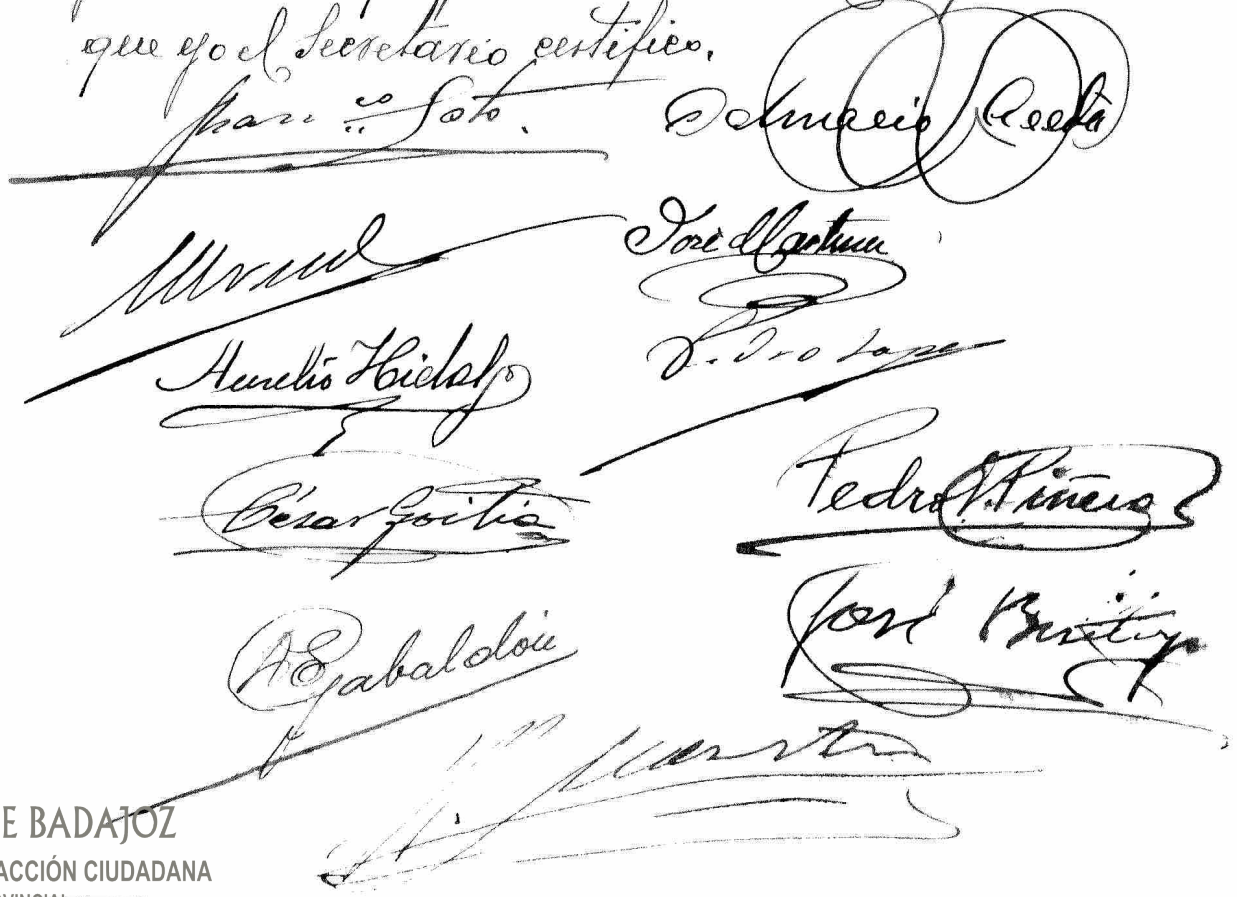 que yo el Secretario certifico.
Franco Soto.
Dalmacio
José Martinez
Aurelio Hidalgo
Pedro Lopez
César Goitia
Pedro Piñero
José Benitez
A Gabaldón
E BADAJOZ
ACCIÓN CIUDADANA